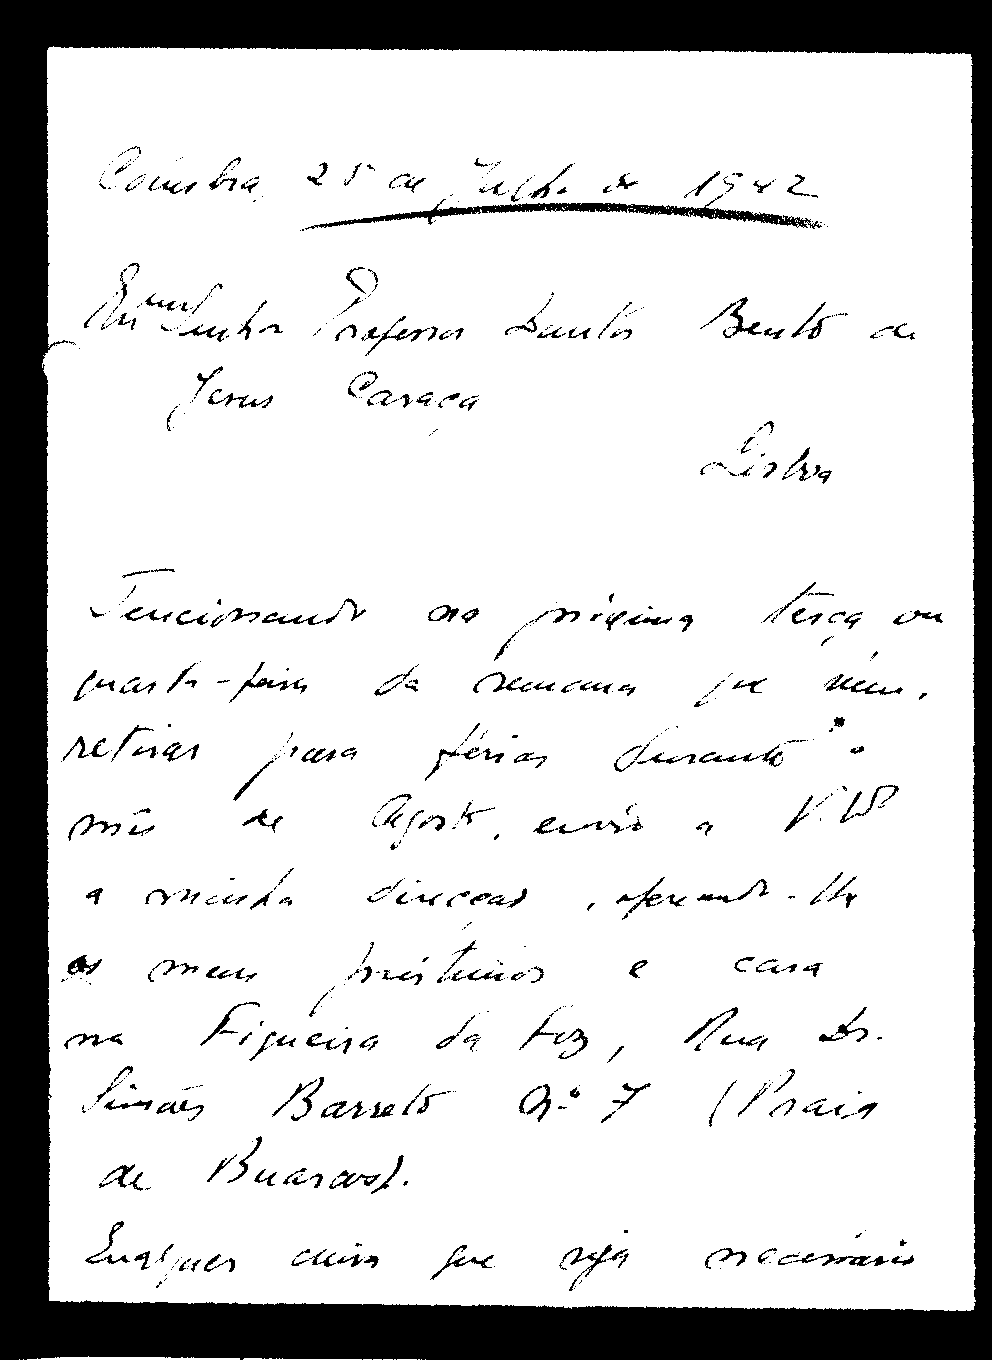 Coimbra, 25 de Julho de 1942
Exmo Senhor Professor Doutor Bento de
Jesus Caraça
Lisboa
Tencionando na próxima terça ou
quarta-feira da semana que vem,
retirar para férias durante o
mês de Agosto, envio a V. Exª
a minha direcção, oferecendo-lhe
os meus préstimos e casa
na Figueira da Foz, Rua Dr.
Simões Barreto nº 7 (Praia
de Buarcos).
Qualquer coisa que seja necessário